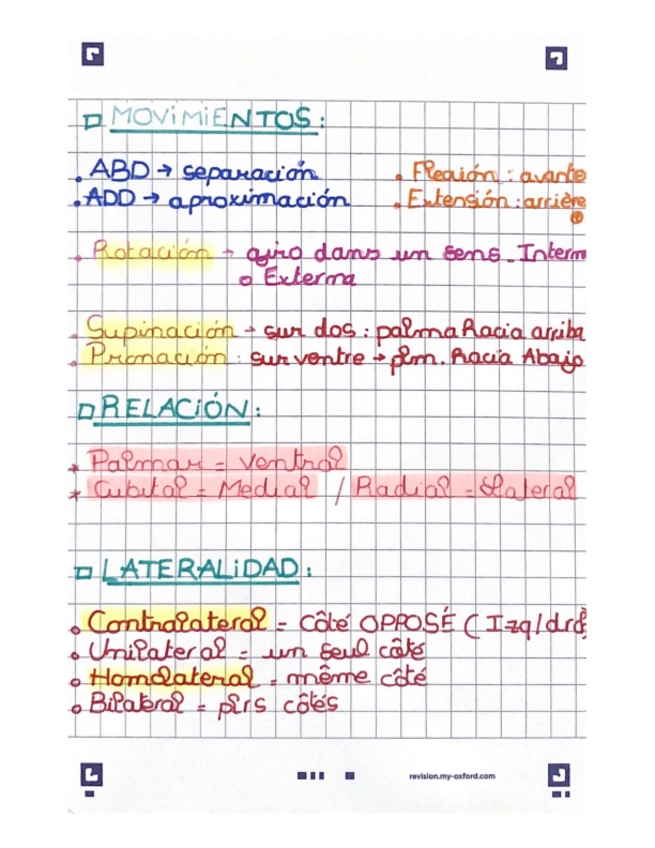 MOVIMIENTOS:
. ABD → separación . Flexión : avante
. ADD → aproximación . Extensión : arrière
. Rotación → giro dans un sens _ Interna
o Externa
. Supinación → sur dos : palma hacia arriba
. Pronación : sur ventre → plm. hacia Abajo
RELACIÓN :
* Palmar = Ventral
* Cubital = Medial / Radial = Lateral
LATERALIDAD :
o Contralateral = côté OPPOSÉ ( Izq/dr
o Unilateral = un seul côté
o Homolateral = même côté
o Bilateral = plrs côtés
revision.my-oxford.com